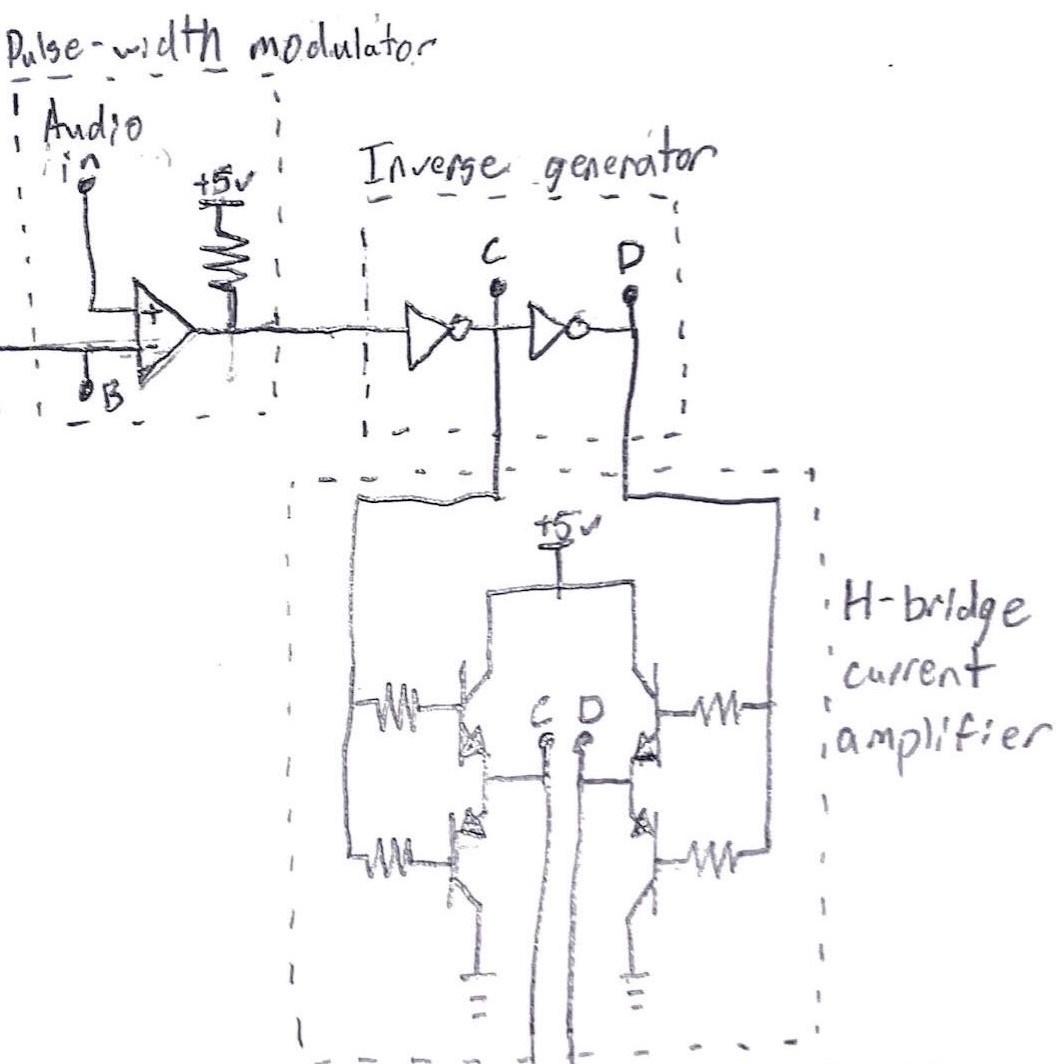 Pulse-width modulator
Audio
in
+5v
+
-
B
Inverse generator
C
D
+5v
C D
H-bridge
current
amplifier